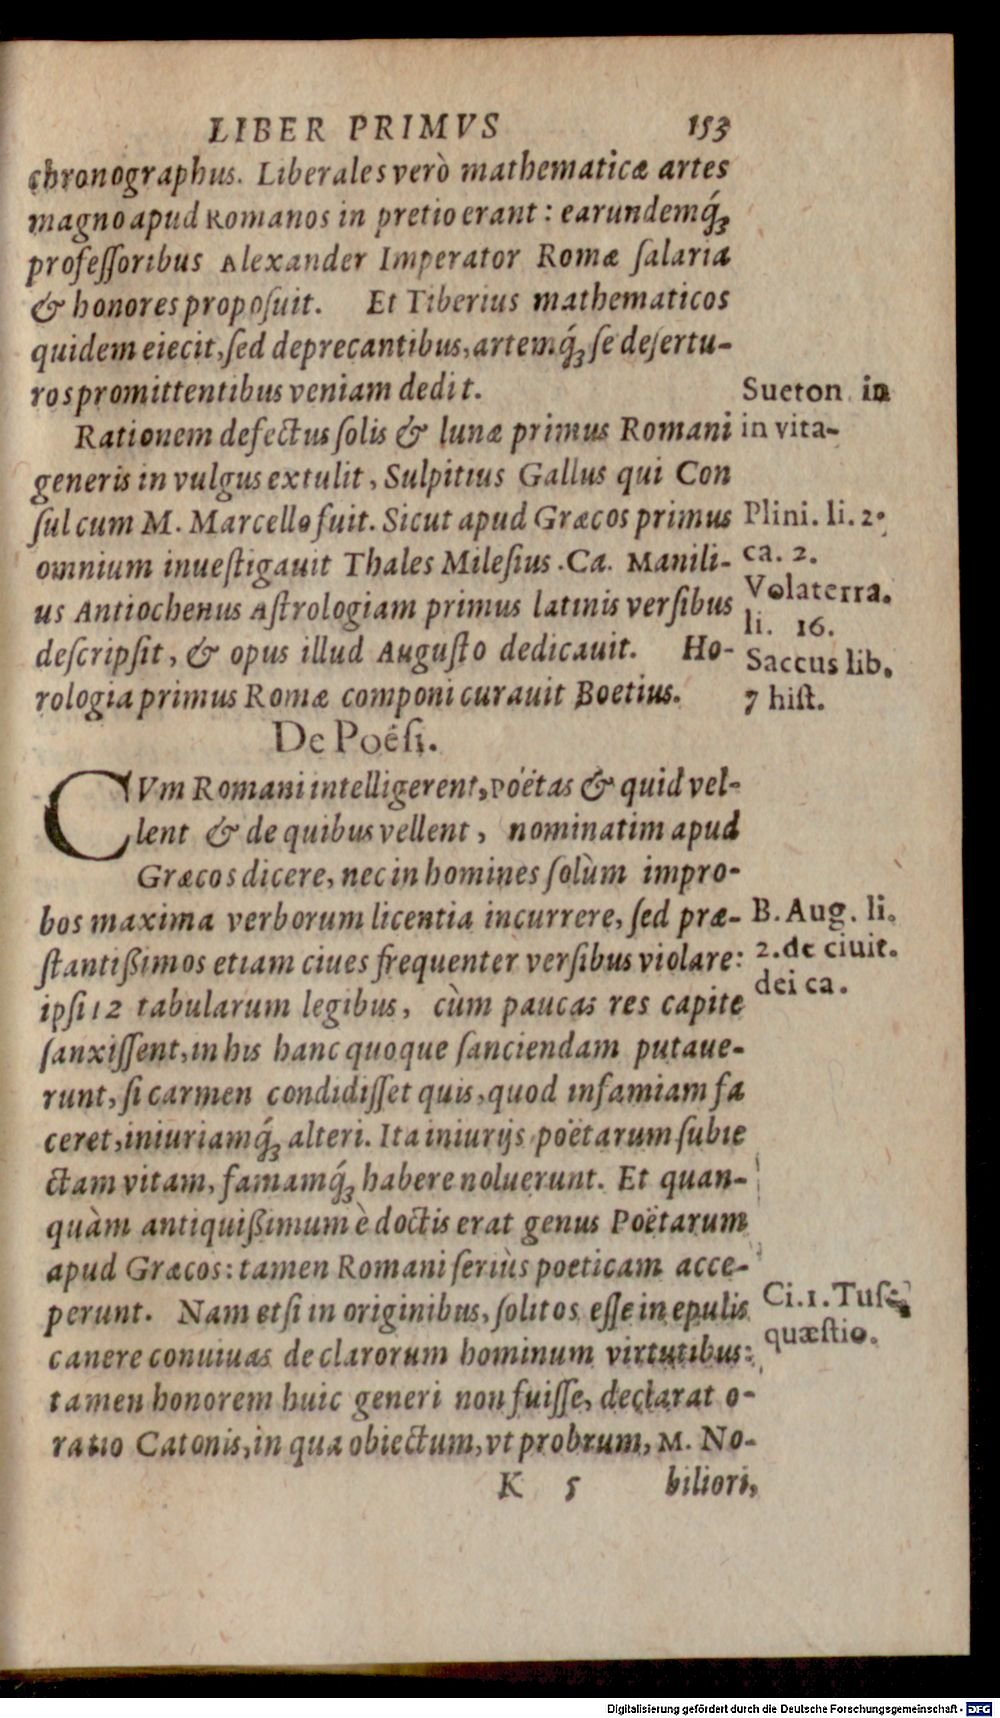 LIBER PRIMVS 153
chronographus. Liberales verò mathematicæ artes
magno apud Romanos in pretio erant: earundemq́ꝫ
profeſſoribus Alexander Imperator Romæ ſalaria
& honores propoſuit. Et Tiberius mathematicos
quidem eiecit, ſed deprecantibus, artemq́ꝫ ſe deſertu-
ros promittentibus veniam dedit.
Sueton. in
Rationem defectus ſolis & lunæ primus Romani
in vita-
generis in vulgus extulit, Sulpitius Gallus qui Con
ſul cum M. Marcello fuit. Sicut apud Græcos primus
Plini. li. 2.
omnium inueſtigauit Thales Mileſius. Ca. Manili-
ca. 2.
us Antiochenus Aſtrologiam primus latinis verſibus
Volaterra.
li. 16.
deſcripſit, & opus illud Auguſto dedicauit. Ho-
Saccus lib.
rologia primus Romæ componi curauit Boetius.
7 hiſt.
De Poëſi.
CVm Romani intelligerent, poëtas & quid vel-
lent & de quibus vellent, nominatim apud
Græcos dicere, nec in homines ſolùm impro-
bos maxima verborum licentia incurrere, ſed præ-
B. Aug. li.
ſtantißimos etiam ciues frequenter verſibus violare:
2. de ciuit.
dei ca.
ipſi 12 tabularum legibus, cùm paucas res capite
ſanxiſſent, in his hanc quoque ſanciendam putaue-
runt, ſi carmen condidiſſet quis, quod infamiam fa
ceret, iniuriamq́ꝫ alteri. Ita iniurijs poëtarum ſubie
ctam vitam, famamq́ꝫ habere noluerunt. Et quan-
quàm antiquißimum è doctis erat genus Poëtarum
apud Græcos: tamen Romani ſeriùs poeticam acce-
perunt. Nam etſi in originibus, ſolitos eſſe in epulis
Ci. 1. Tuſc.
canere conuiuas de clarorum hominum virtutibus:
quæſtio.
tamen honorem huic generi non fuiſſe, declarat o-
ratio Catonis, in qua obiectum, vt probrum, M. No-
K 5 biliori,
Digitalisierung gefördert durch die Deutsche Forschungsgemeinschaft - DFG